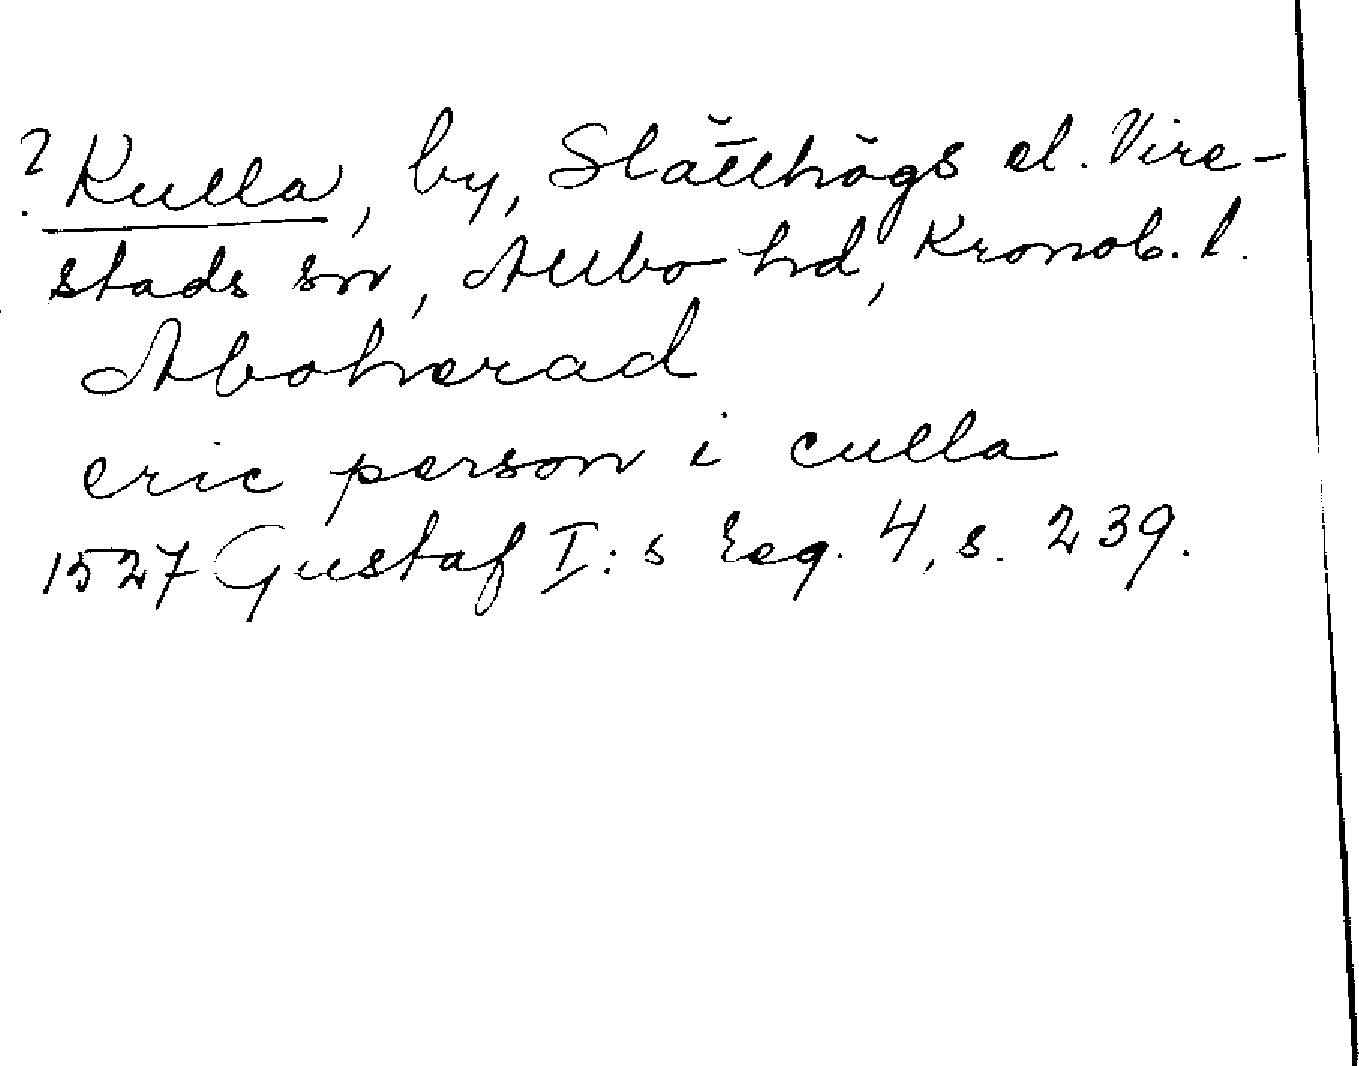 ? Kulla, by, Slätthögs el. Vire-
stads sn, Allbo hd, Kronob. l.
Aboherad
eric person i culla
1527 Gustaf I:s Reg. 4, s. 239.